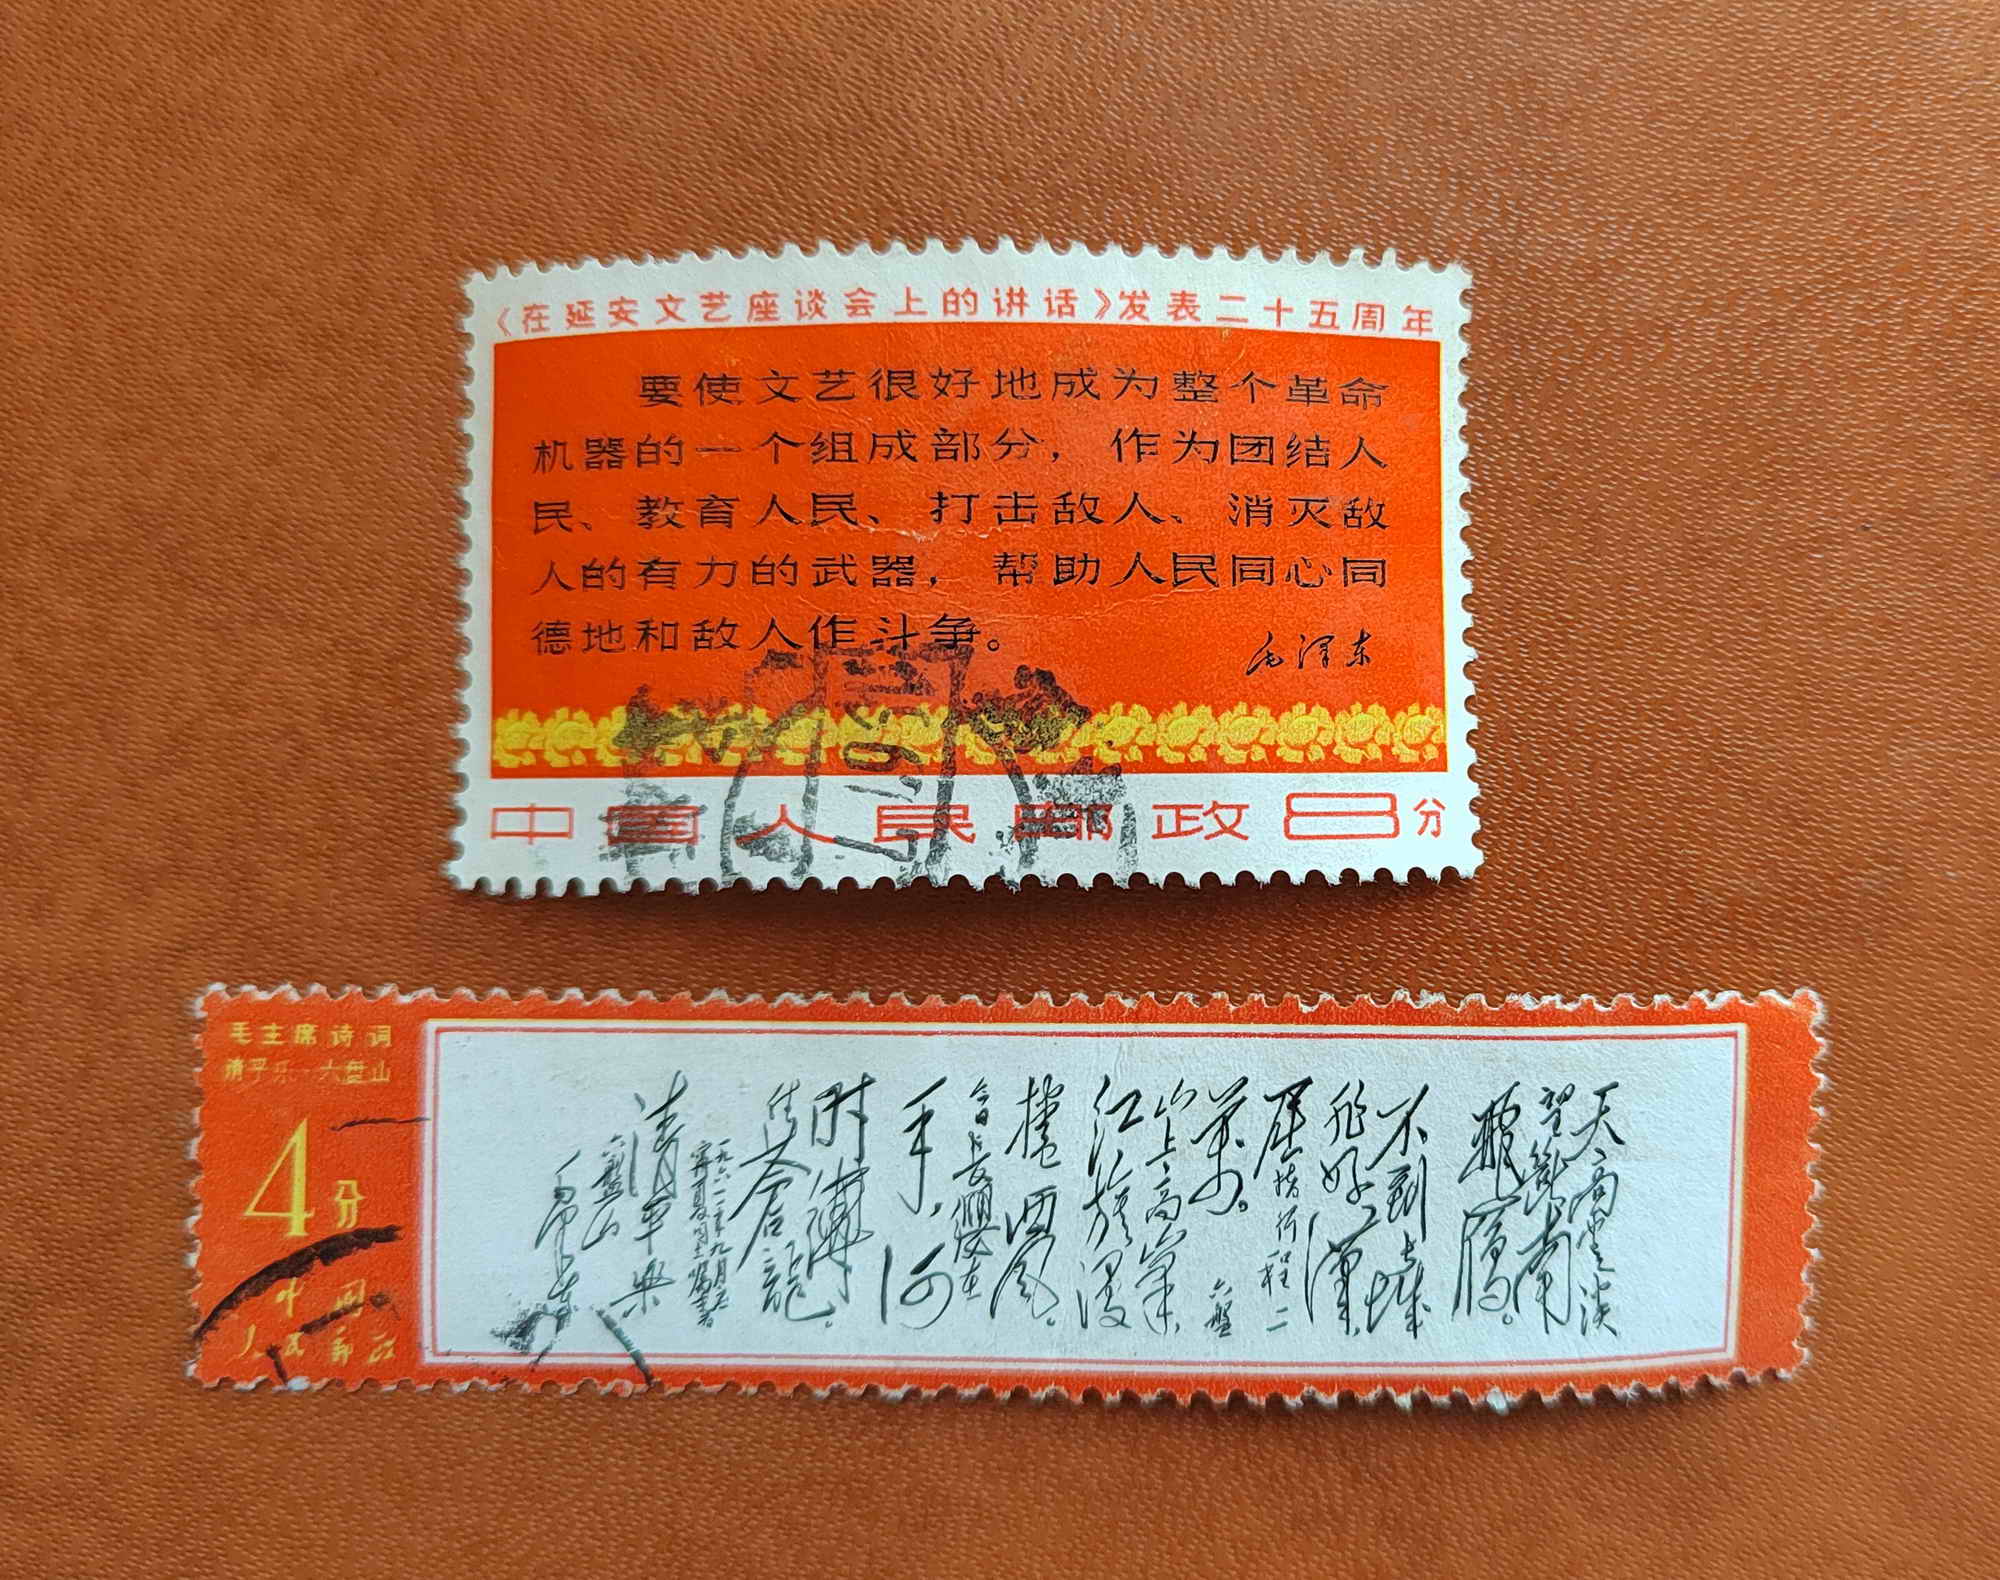 《在延安文艺座谈会上的讲话》发表二十五周年
要使文艺很好地成为整个革命
机器的一个组成部分，作为团结人
民、教育人民、打击敌人、消灭敌
人的有力的武器，帮助人民同心同
德地和敌人作斗争。
毛泽东
中国人民邮政8分
毛主席诗词
清平乐·六盘山
4分
中国
人民邮政
天高雲淡
望斷南
飛雁。
不到長城
非好漢，
屈指行程二
萬。六盤
山上高峯，
紅旗漫
捲西風。
今日長纓在
手，何
時縛
住蒼龍。
一九六一年九月應
寧夏同志囑書
清平樂
六盤山
毛泽东